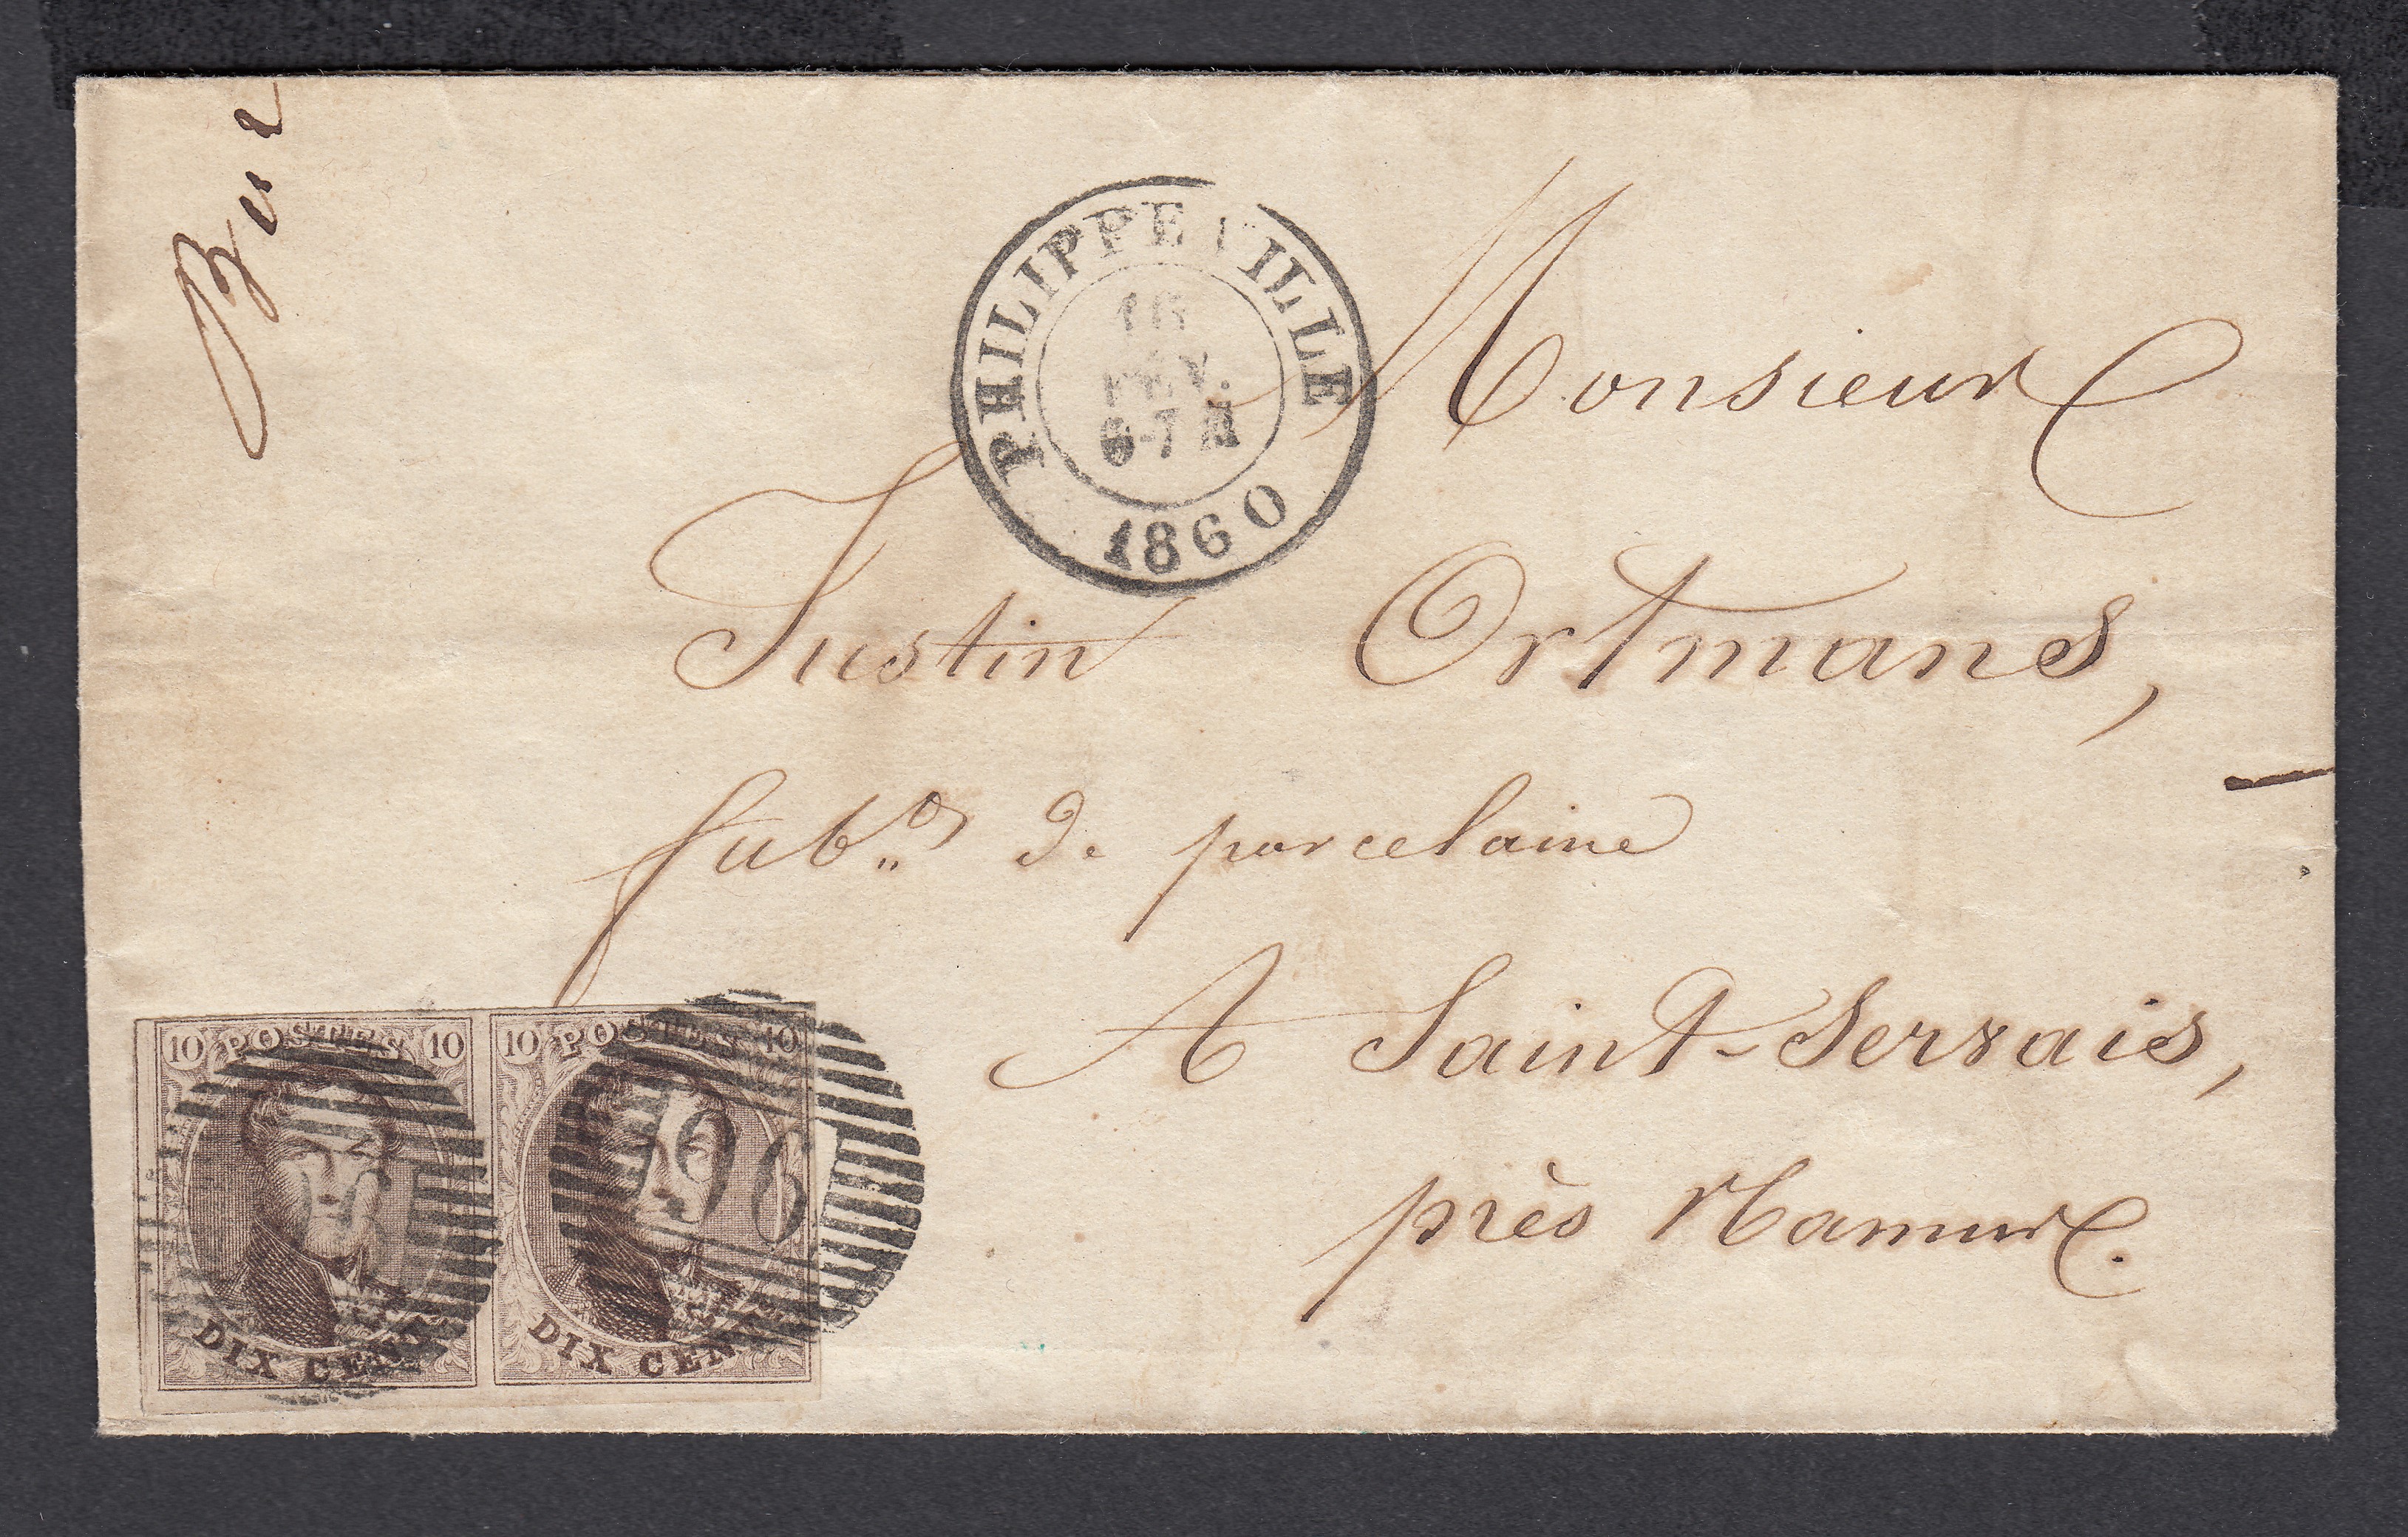 PHILIPPEVILLE
16
FEV.
6-7
1860
Monsieur
Justin Ortmans,
fab. de porcelaine
A Saint-Servais,
près Namur.
10 POSTES 10 10 POSTES 10
96
DIX CENT DIX CEN